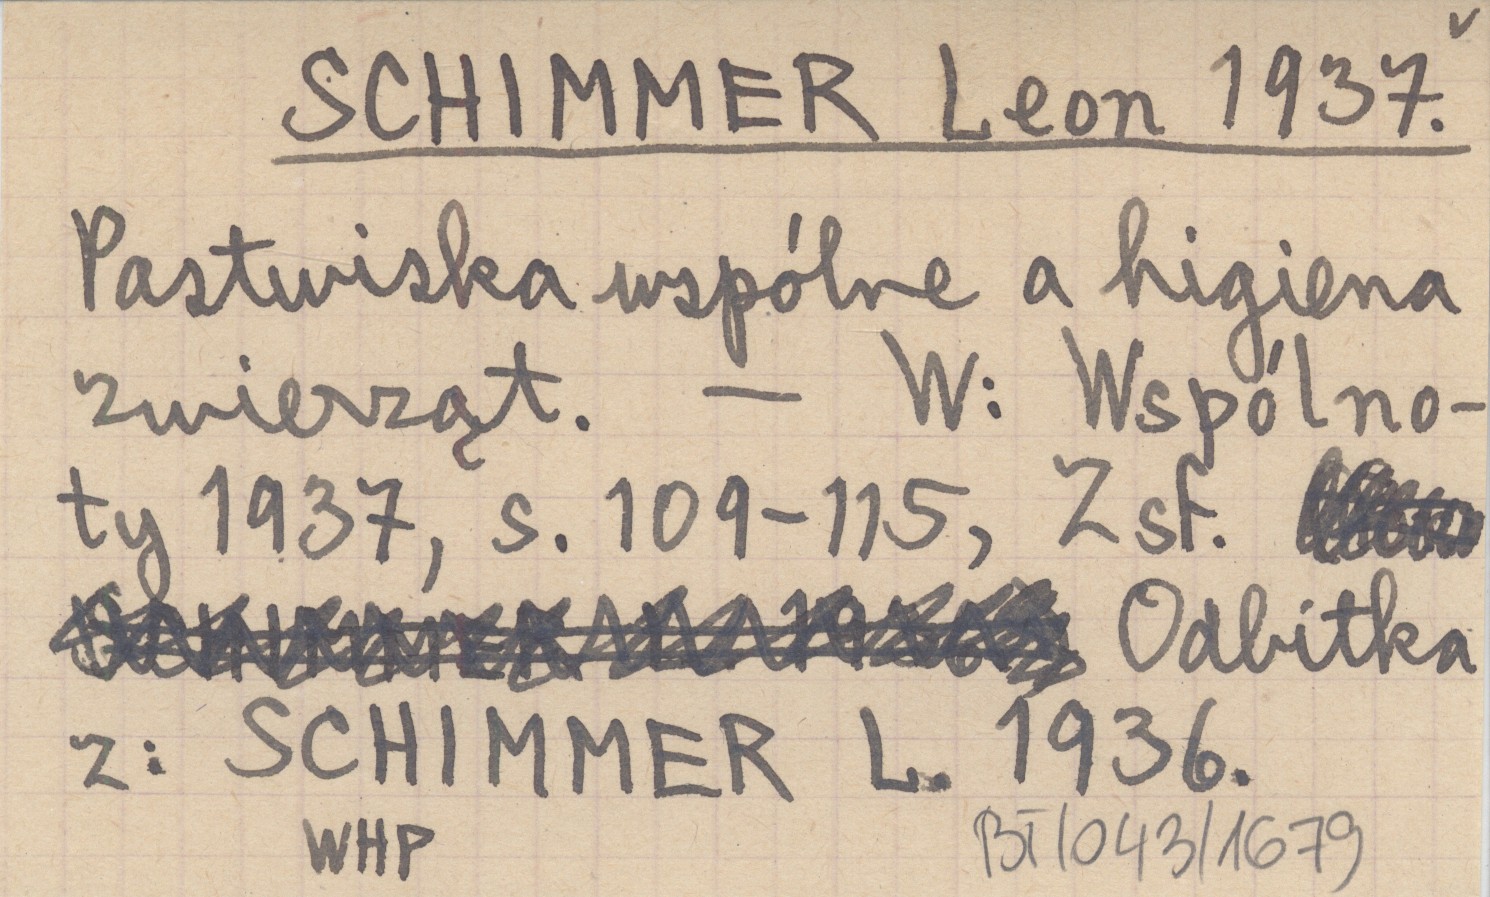 v
SCHIMMER Leon 1937.
Pastwiska wspólne a higiena
zwierząt. — W: Wspólno-
ty 1937, s. 109-115, Zsf.
Odbitka
z: SCHIMMER L. 1936.
WHP
BT/043/1679